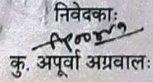 निवेदकाः
कु. अपूर्वा अग्रवालः